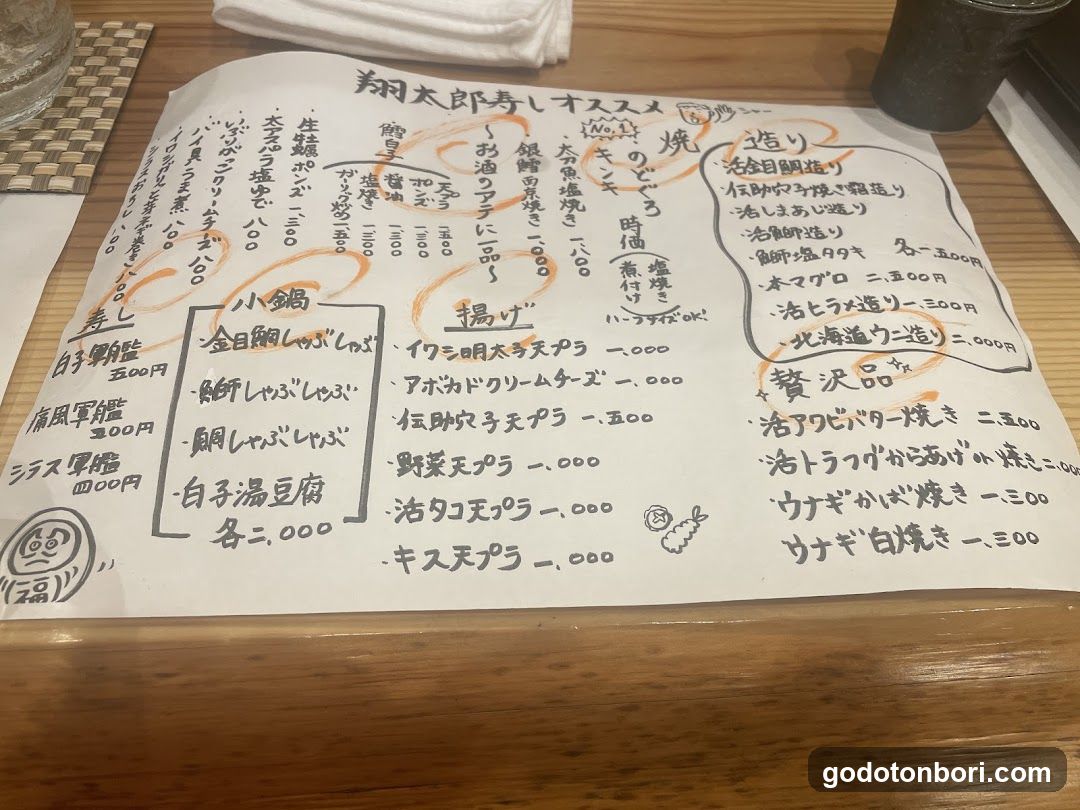 翔太郎寿しオススメ
造り
活金目鯛造り
・伝助穴子焼き霜造り
・活しまあじ造り
・活鰤造り
・鰤塩タタキ
各二、五00円
・本マグロ 二、五00円
・活ヒラメ造り一、三00円
・北海道ウニ造り二、000円
焼
No.1
のどぐろ
キンキ
時価
塩焼き
煮付け
ハーフサイズOK!
・太刀魚塩焼き 一、八00
・銀鱈西京焼き 一、000
〜お酒のアテに一品〜
鱈白子
天ぷら 一、五00
ポンズ 一、三00
醤油
塩焼き 一、三00
ガーリック炒め 一、五00
・生牡蠣ポンズ 一、三00
・太アスパラ塩ゆで 八00
・いぶりがっこクリームチーズ 八00
・バイ貝うま煮 八00
・シラスおろし 八00
贅沢品
・活アワビバター焼き 二、五00
・活トラフグからあげor焼き二、000
・ウナギかば焼き 一、三00
ウナギ白焼き 一、三00
揚げ
・イワシ明太子天プラ 一、000
・アボカドクリームチーズ 一、000
・伝助穴子天プラ 一、五00
・野菜天プラ 一、000
・活タコ天プラ 一、000
・キス天プラ 一、000
小鍋
・金目鯛しゃぶしゃぶ
・鰤しゃぶしゃぶ
・鯛しゃぶしゃぶ
・白子湯豆腐
各二、000
寿し
白子軍艦
五00円
痛風軍艦
五00円
シラス軍艦
四00円
福
godotonbori.com